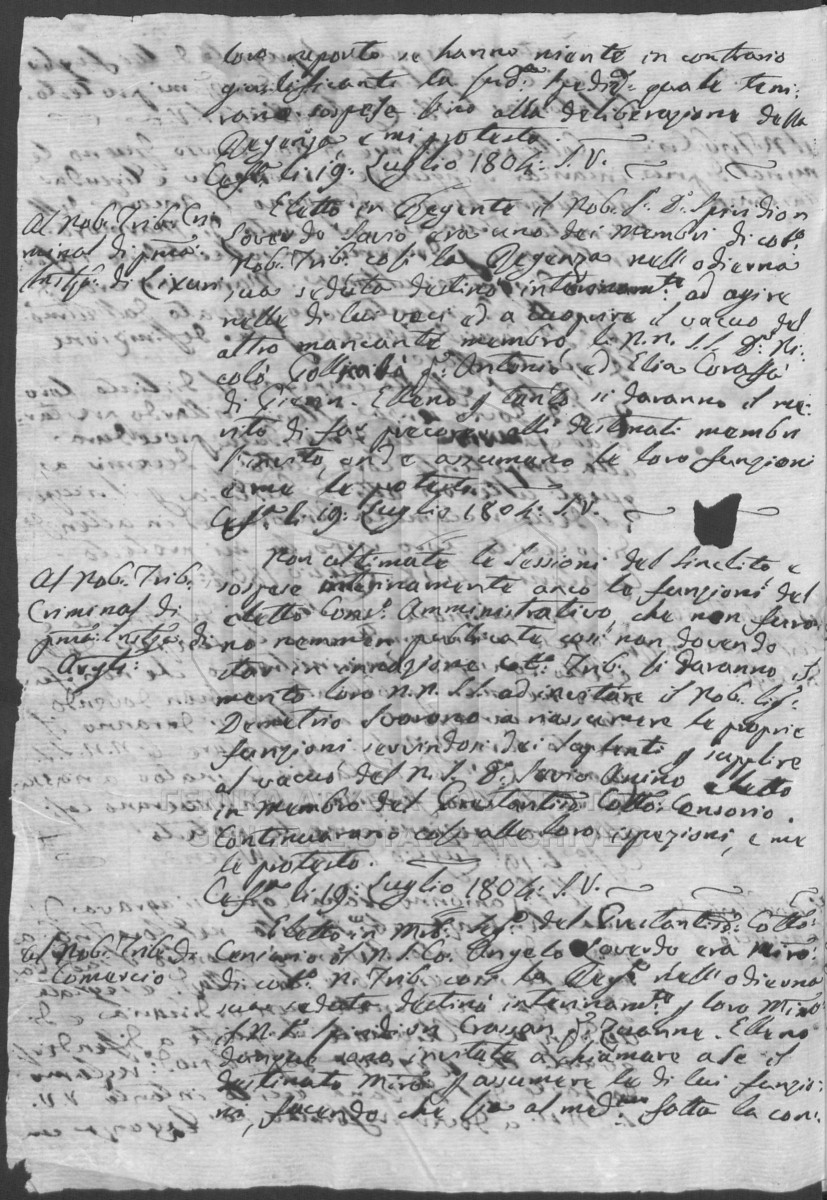 loro riporto se hanno niente in contrario
giustificante la sud.a sped.e quale tem:
rano sospesa sino alla deliberazione della
Regenza e mi protesto.
Ceff.a li 19: Luglio 1804: S.V.
Al Nob: Trib: Cri
minal di pma:
Instza: di Lixuri
Eletto in Regente il Nob: S.r D.r Spiridion
Loverdo Savio era uno dei Membri di cod.o
Nob: Trib: così la Regenza nell'odierna
sua seduta destinò interinam.te ad agire
nelle di lui veci ed a cuoprire il vacuo del
altro mancante membro, li N.N. S.S. D.r Ni
colò q.m Antonio, ed Elia Coraffà
di Gierm. Elleno p tanto si daranno il me:
rito di far alli destinati membri
onde assumano le loro funzioni
e me le protesto.
Ceff.a li 19: Luglio 1804: S.V.
Al Nob: Trib:
Criminal di
pma: Instza: di
Argli:
Non ultimate le Sessioni del Sinclito e
sospese interinamente anco le funzioni del
eletto Cons.o Amministrativo, che non furo
no nemmen publicate così non dovendo
innazione cotto: Trib: si daranno il
merito loro N.N. S.S. ad invitare il Nob: Sig.r
Demetrio a riassumere le proprie
funzioni servindosi dei p supplire
al vacuo del N.S. D.r Savio Anino eletto
in membro del Prestantiss: Cotto: Censorio.
Continuaranno così alle loro ispezioni, e me
le protesto.
Ceff.a li 19: Luglio 1804: S.V.
Al Nob: Trib: di
Comercio
Eletto in Mro: Seg.o del Prestantiss: Cotto:
Censorio il N.S. Co: Angelo Loverdo era Miro:
di cod.o N: Trib: così la Reg.a nell'odierna
sua seduta destinò interinam.te p loro Miro
il N.S. Spiridion Crassan q.m Zuanne. Elleno
donque sono invitate a chiamare a se il
destinato Miro: p assumere le di lui funzio:
ni, facendo che sia al med.mo fatta la con: